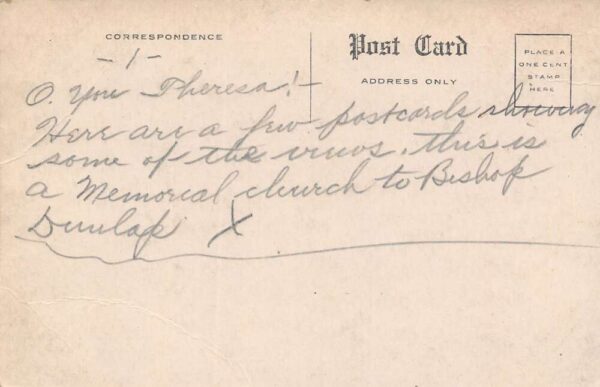 CORRESPONDENCE
Post Card
ADDRESS ONLY
PLACE A
ONE CENT
STAMP
HERE
-1-
O. You Theresa!-
Here are a few postcards showing
some of the views. this is
a Memorial church to Bishop
Dunlap X